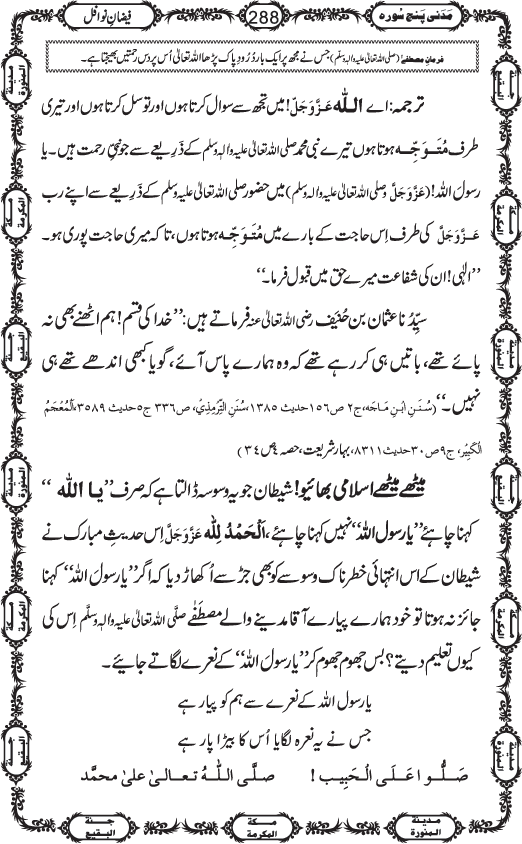 مَدَنی پنج سورہ
288
فیضانِ نوافل
فرمانِ مصطفےٰ (صلی اللہ تعالیٰ علیہ والہٖ وسلّم) جس نے مجھ پر ایک بار دُرُودِ پاک پڑھا اللہ تعالیٰ اُس پر دس رحمتیں بھیجتا ہے۔
ترجمہ: اے اللہ عَزَّوَجَلَّ! میں تجھ سے سوال کرتا ہوں اور توسل کرتا ہوں اور تیری
طرف مُتَوَجِّہ ہوتا ہوں تیرے نبی محمد صلی اللہ تعالیٰ علیہ والہٖ وسلم کے ذَرِیعے سے جو نبیِ رحمت ہیں۔ یا
رسول اللہ! (عَزَّوَجَلَّ و صلی اللہ تعالیٰ علیہ والہ وسلم) میں حضور صلی اللہ تعالیٰ علیہ والہ وسلم کے ذَرِیعے سے اپنے رب
عَزَّوَجَلَّ کی طرف اِس حاجت کے بارے میں مُتَوَجِّہ ہوتا ہوں، تاکہ میری حاجت پوری ہو۔
’’الٰہی! ان کی شفاعت میرے حق میں قبول فرما۔‘‘
سیِّدُنا عثمان بن حُنَیف رضی اللہ تعالیٰ عنہ فرماتے ہیں: ’’خدا کی قسم! ہم اٹھنے بھی نہ
پائے تھے، باتیں ہی کر رہے تھے کہ وہ ہمارے پاس آئے، گویا کبھی اندھے تھے ہی
نہیں۔‘‘ (سُنَنِ ابنِ مَاجَہ، ج۲ ص۱۵۶ حدیث ۱۳۸۵، سُنَنُ التِّرْمِذِیّ، ص۳۳۶ ج۵ حدیث ۳۵۸۹، اَلْمُعْجَمُ
الْکَبِیْر، ج۹ ص۳۰ حدیث ۸۳۱۱، بہارِ شریعت، حصہ ۴ ص ۳۴)
میٹھے میٹھے اسلامی بھائیو! شیطان جو یہ وسوسہ ڈالتا ہے کہ صرف ’’یا اللہ‘‘
کہنا چاہئے ’’یا رسول اللہ‘‘ نہیں کہنا چاہئے، اَلْحَمْدُ لِلّٰہ عَزَّوَجَلَّ اِس حدیثِ مبارک نے
شیطان کے اس انتہائی خطرناک وسوسے کو بھی جڑ سے اُکھاڑ دیا کہ اگر ’’یا رسولَ اللہ‘‘ کہنا
جائز نہ ہوتا تو خود ہمارے پیارے آقا مدینے والے مصطفٰے صلَّی اللہ تعالیٰ علیہ والہٖ وسلَّم اِس کی
کیوں تعلیم دیتے؟ بس جھوم جھوم کر ’’یا رسولَ اللہ‘‘ کے نعرے لگاتے جائیے۔
یا رسول اللہ کے نعرے سے ہم کو پیار ہے
جس نے یہ نعرہ لگایا اُس کا بیڑا پار ہے
صَلُّوا عَلَی الْحَبِیب! صلَّی اللّٰہُ تعالیٰ علیٰ محمَّد
مدینۃ المنورۃ
مکۃ المکرمۃ
جنۃ البقیع